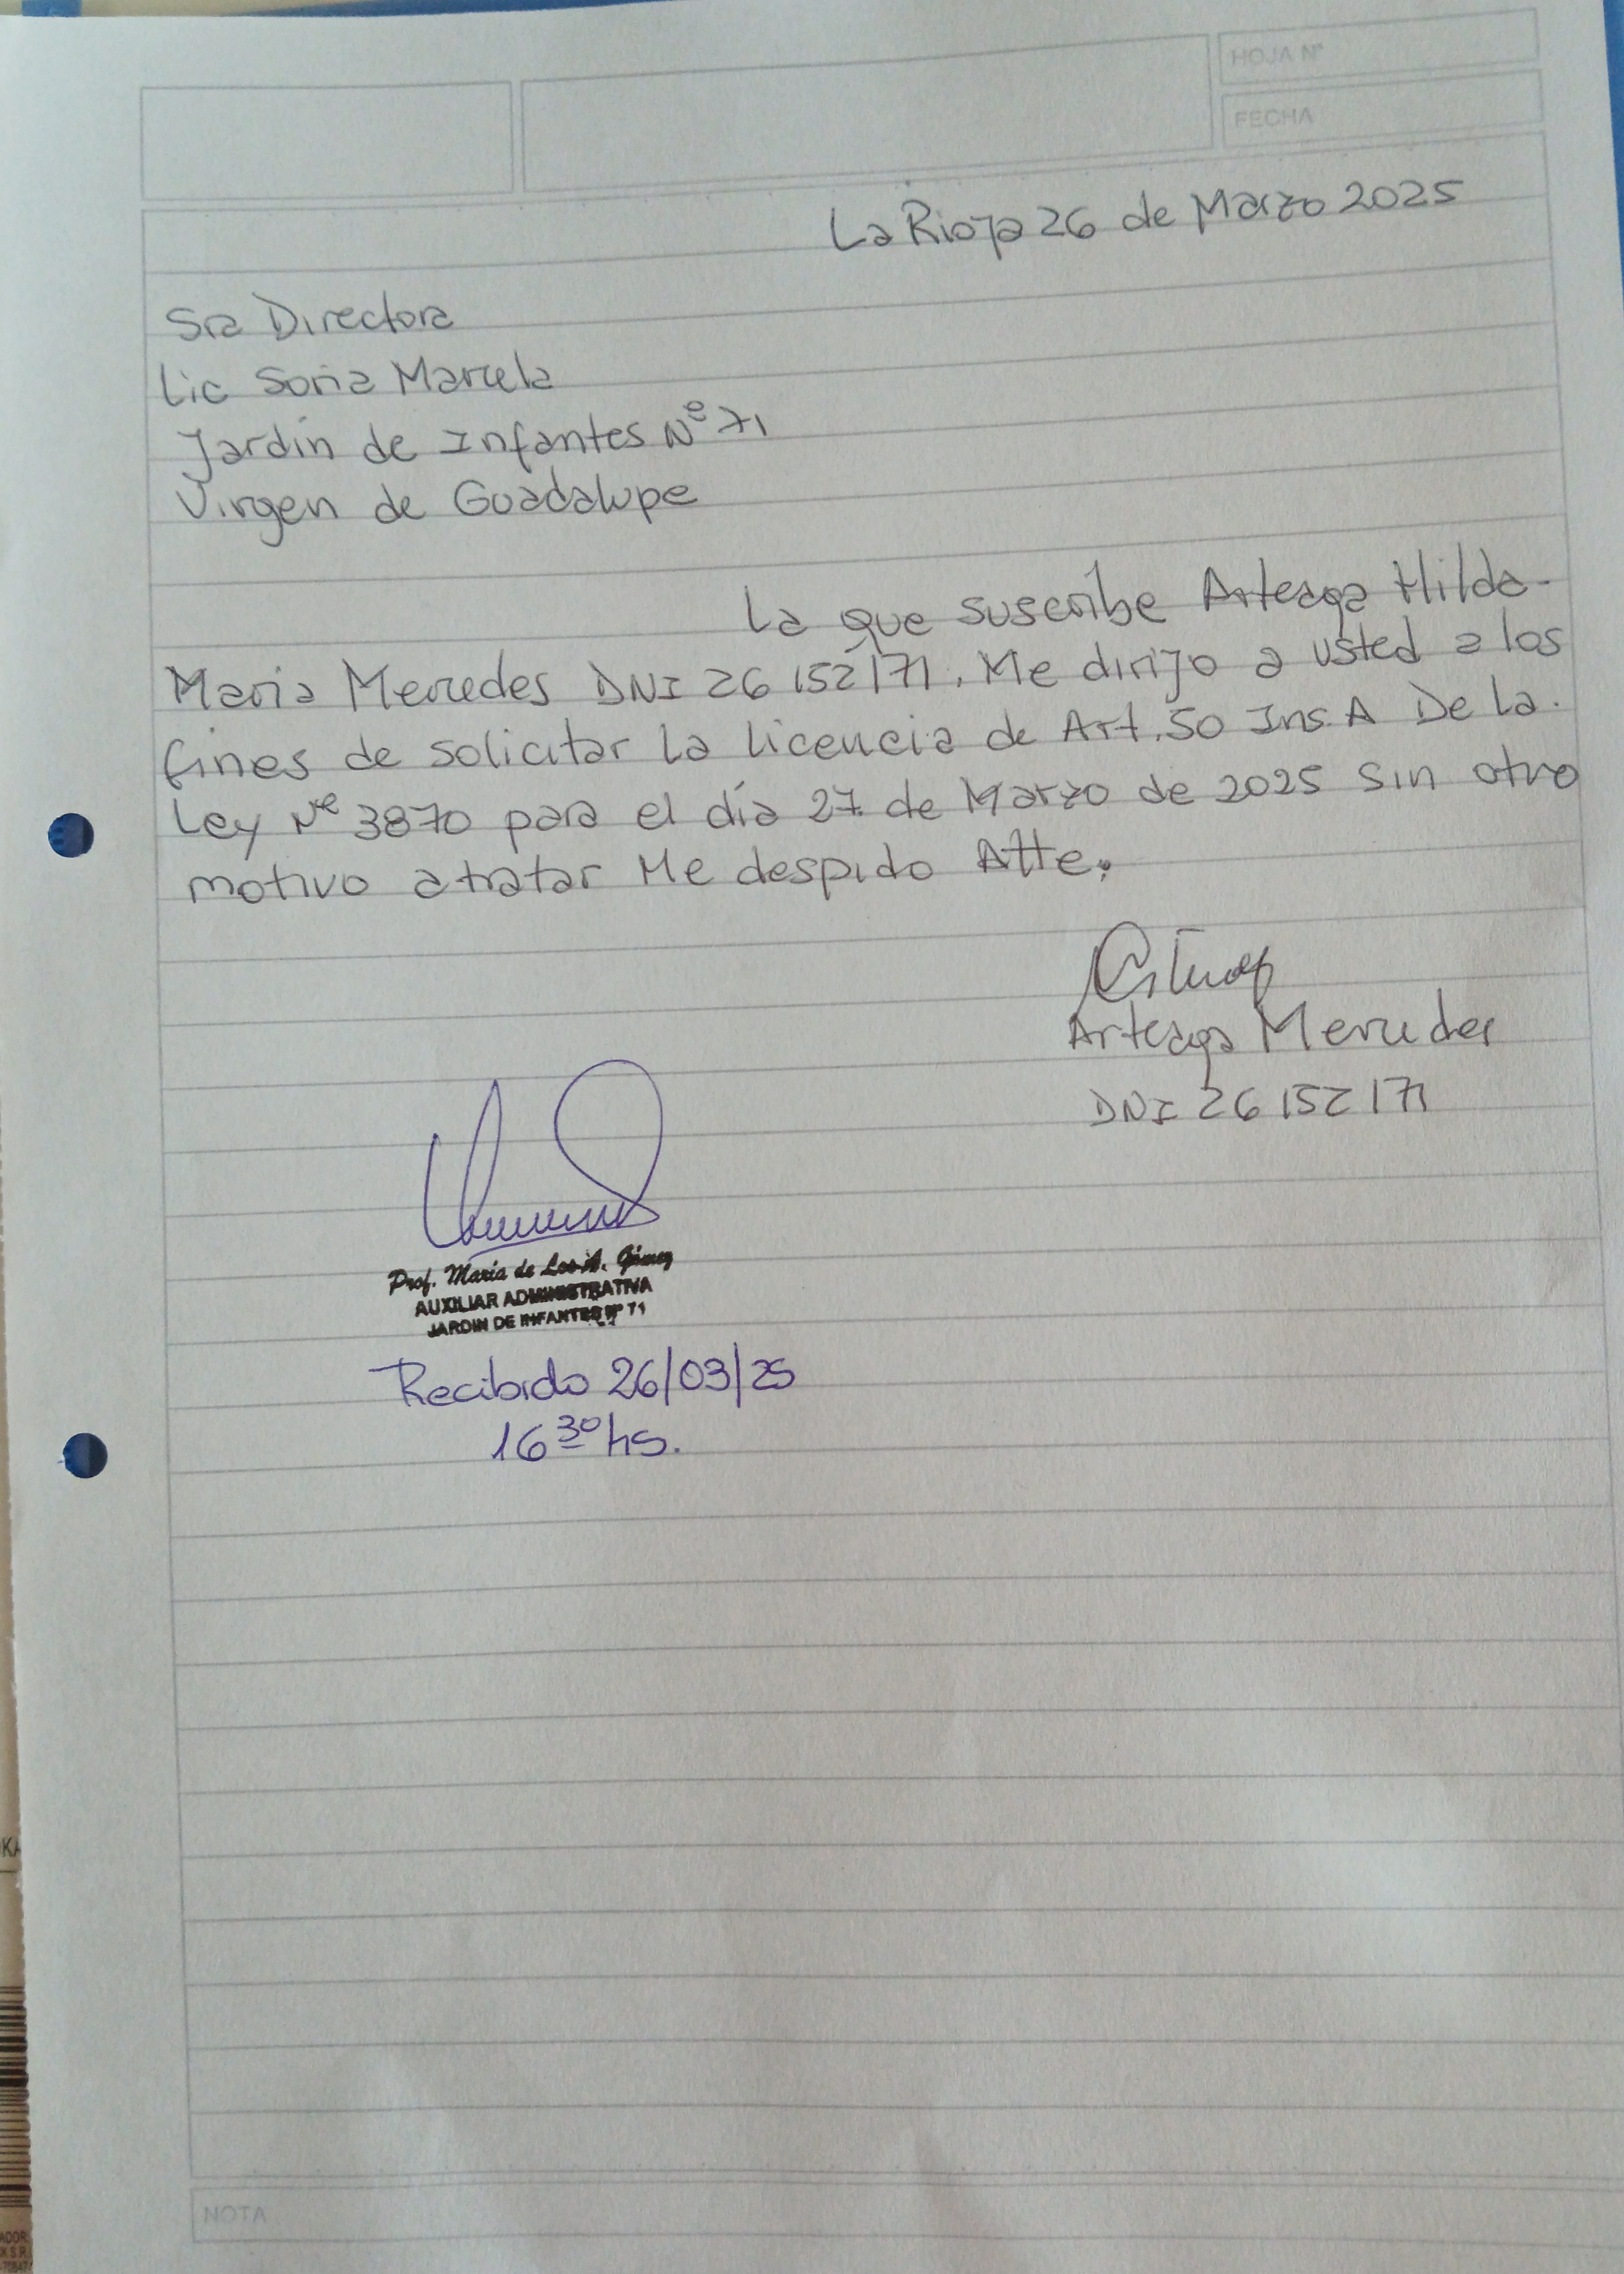 HOJA N°
FECHA
La Rioja 26 de Marzo 2025
Sra Directora
Lic Soria Marcela
Jardín de Infantes Nº 71
Virgen de Guadalupe
La que suscribe Arteaga Hilda-
Maria Mercedes DNI 26 152 171. Me dirijo a usted a los
fines de solicitar la licencia de Art. 50 Ins. A De la.
Ley Nº 3870 para el día 27 de Marzo de 2025 sin otro
motivo a tratar Me despido Atte.
Arteaga Mercedes
DNI 26 152 171
Prof. María de Los A. Gómez
AUXILIAR ADMINISTRATIVA
JARDIN DE INFANTES Nº 71
Recibido 26/03/25
16 30 hs.
NOTA